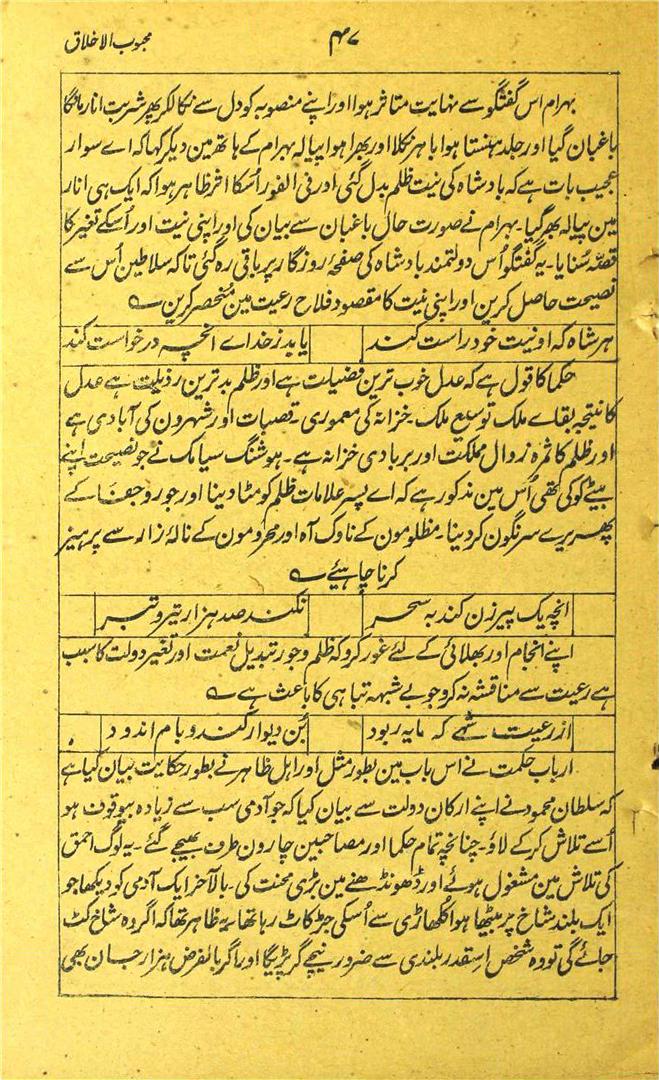 محبوب الاخلاق
۴۷
بہرام اس گفتگو سے نہایت متاثر ہوا اور اپنے منصوبہ کو دل سے نکالکر پھر شربت انار مانگا
باغبان گیا اور جلد ہنستا ہوا باہر نکلا اور بھرا ہوا پیالہ بہرام کے ہاتھ مین دیکر کہا کہ اے سوار
عجیب بات ہے کہ بادشاہ کی نیت ظلم بدل گئی اور فی الفور اُسکا اثر ظاہر ہوا کہ ایک ہی انار
مین پیالہ بھر گیا۔ بہرام نے صورت حال باغبان سے بیان کی اور اپنی نیت اور اُسکے تغیر کا
قصّہ سُنایا۔ یہ گفتگو اُس دولتمند بادشاہ کی صفحۂ روزگار پر باقی رہ گئی تاکہ سلاطین اُس سے
نصیحت حاصل کرین اور اپنی نیت کا مقصود فلاح رعیت مین منحصر کرین ؎
ہر شاہ کہ او نیت خود راست کند یابد ز خداے انچہ درخواست کند
حکما کا قول ہے کہ عدل خوب ترین فضیلت ہے اور ظلم بدترین رذیلت ہے عدل
کا نتیجہ بقاے ملک توسیع ملک۔ خزانہ کی معموری۔ قصبات اور شہرون کی آبادی ہے
اور ظلم کا ثمرہ زوال مملکت اور بربادی خزانہ ہے۔ ہوشنگ سیامک نے جو نصیحت اپنے
بیٹے کو کی تھی اُس مین مذکور ہے کہ اے پسر علامات ظلم کو مٹا دینا اور جور و جفا کے
پھریرے سرنگون کر دینا۔ مظلومون کے ناوک آہ اور محرومون کے نالۂ زار سے پرہیز
کرنا چاہیئے ؎
انچہ یک پیر زن کند بہ سحر نکند صد ہزار تیر و تبر
اپنے انجام اور بھلائی کے لئے غور کرو کہ ظلم و جور تبدیل نعمت اور تغیر دولت کا سبب
ہے رعیت سے مناقشہ نہ کرو جو بے شبہہ تباہی کا باعث ہے ؎
از رعیت شہے کہ مایہ ربود بُن دیوار کند و بام اندود
ارباب حکمت نے اس باب مین بطور مثل اور اہل ظاہر نے بطور حکایت بیان کیا ہے
کہ سلطان محمود نے اپنے ارکان دولت سے بیان کیا کہ جو آدمی سب سے زیادہ بیوقوف ہو
اُسے تلاش کر کے لاؤ۔ چنانچہ تمام حکما اور مصاحبین چارون طرف بھیجے گئے۔ یہ لوگ احمق
کی تلاش مین مشغول ہوئے اور ڈھونڈھنے مین بڑی محنت کی۔ بالآخر ایک آدمی کو دیکھا جو
ایک بلند شاخ پر بیٹھا ہوا کلھاڑی سے اُسکی جڑ کاٹ رہا تھا یہ ظاہر تھا کہ اگر وہ شاخ کٹ
جائے گی تو وہ شخص اسقدر بلندی سے ضرور نیچے گر پڑیگا اور اگر بالفرض ہزار جان بھی